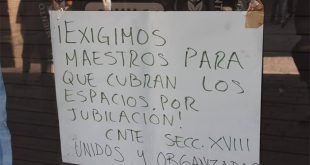 ¡EXIGIMOS
MAESTROS PARA
QUE CUBRAN LOS
ESPACIOS, POR
JUBILACIÓN!
CNTE SECC. XVIII
UNIDOS Y ORGANIZADOS